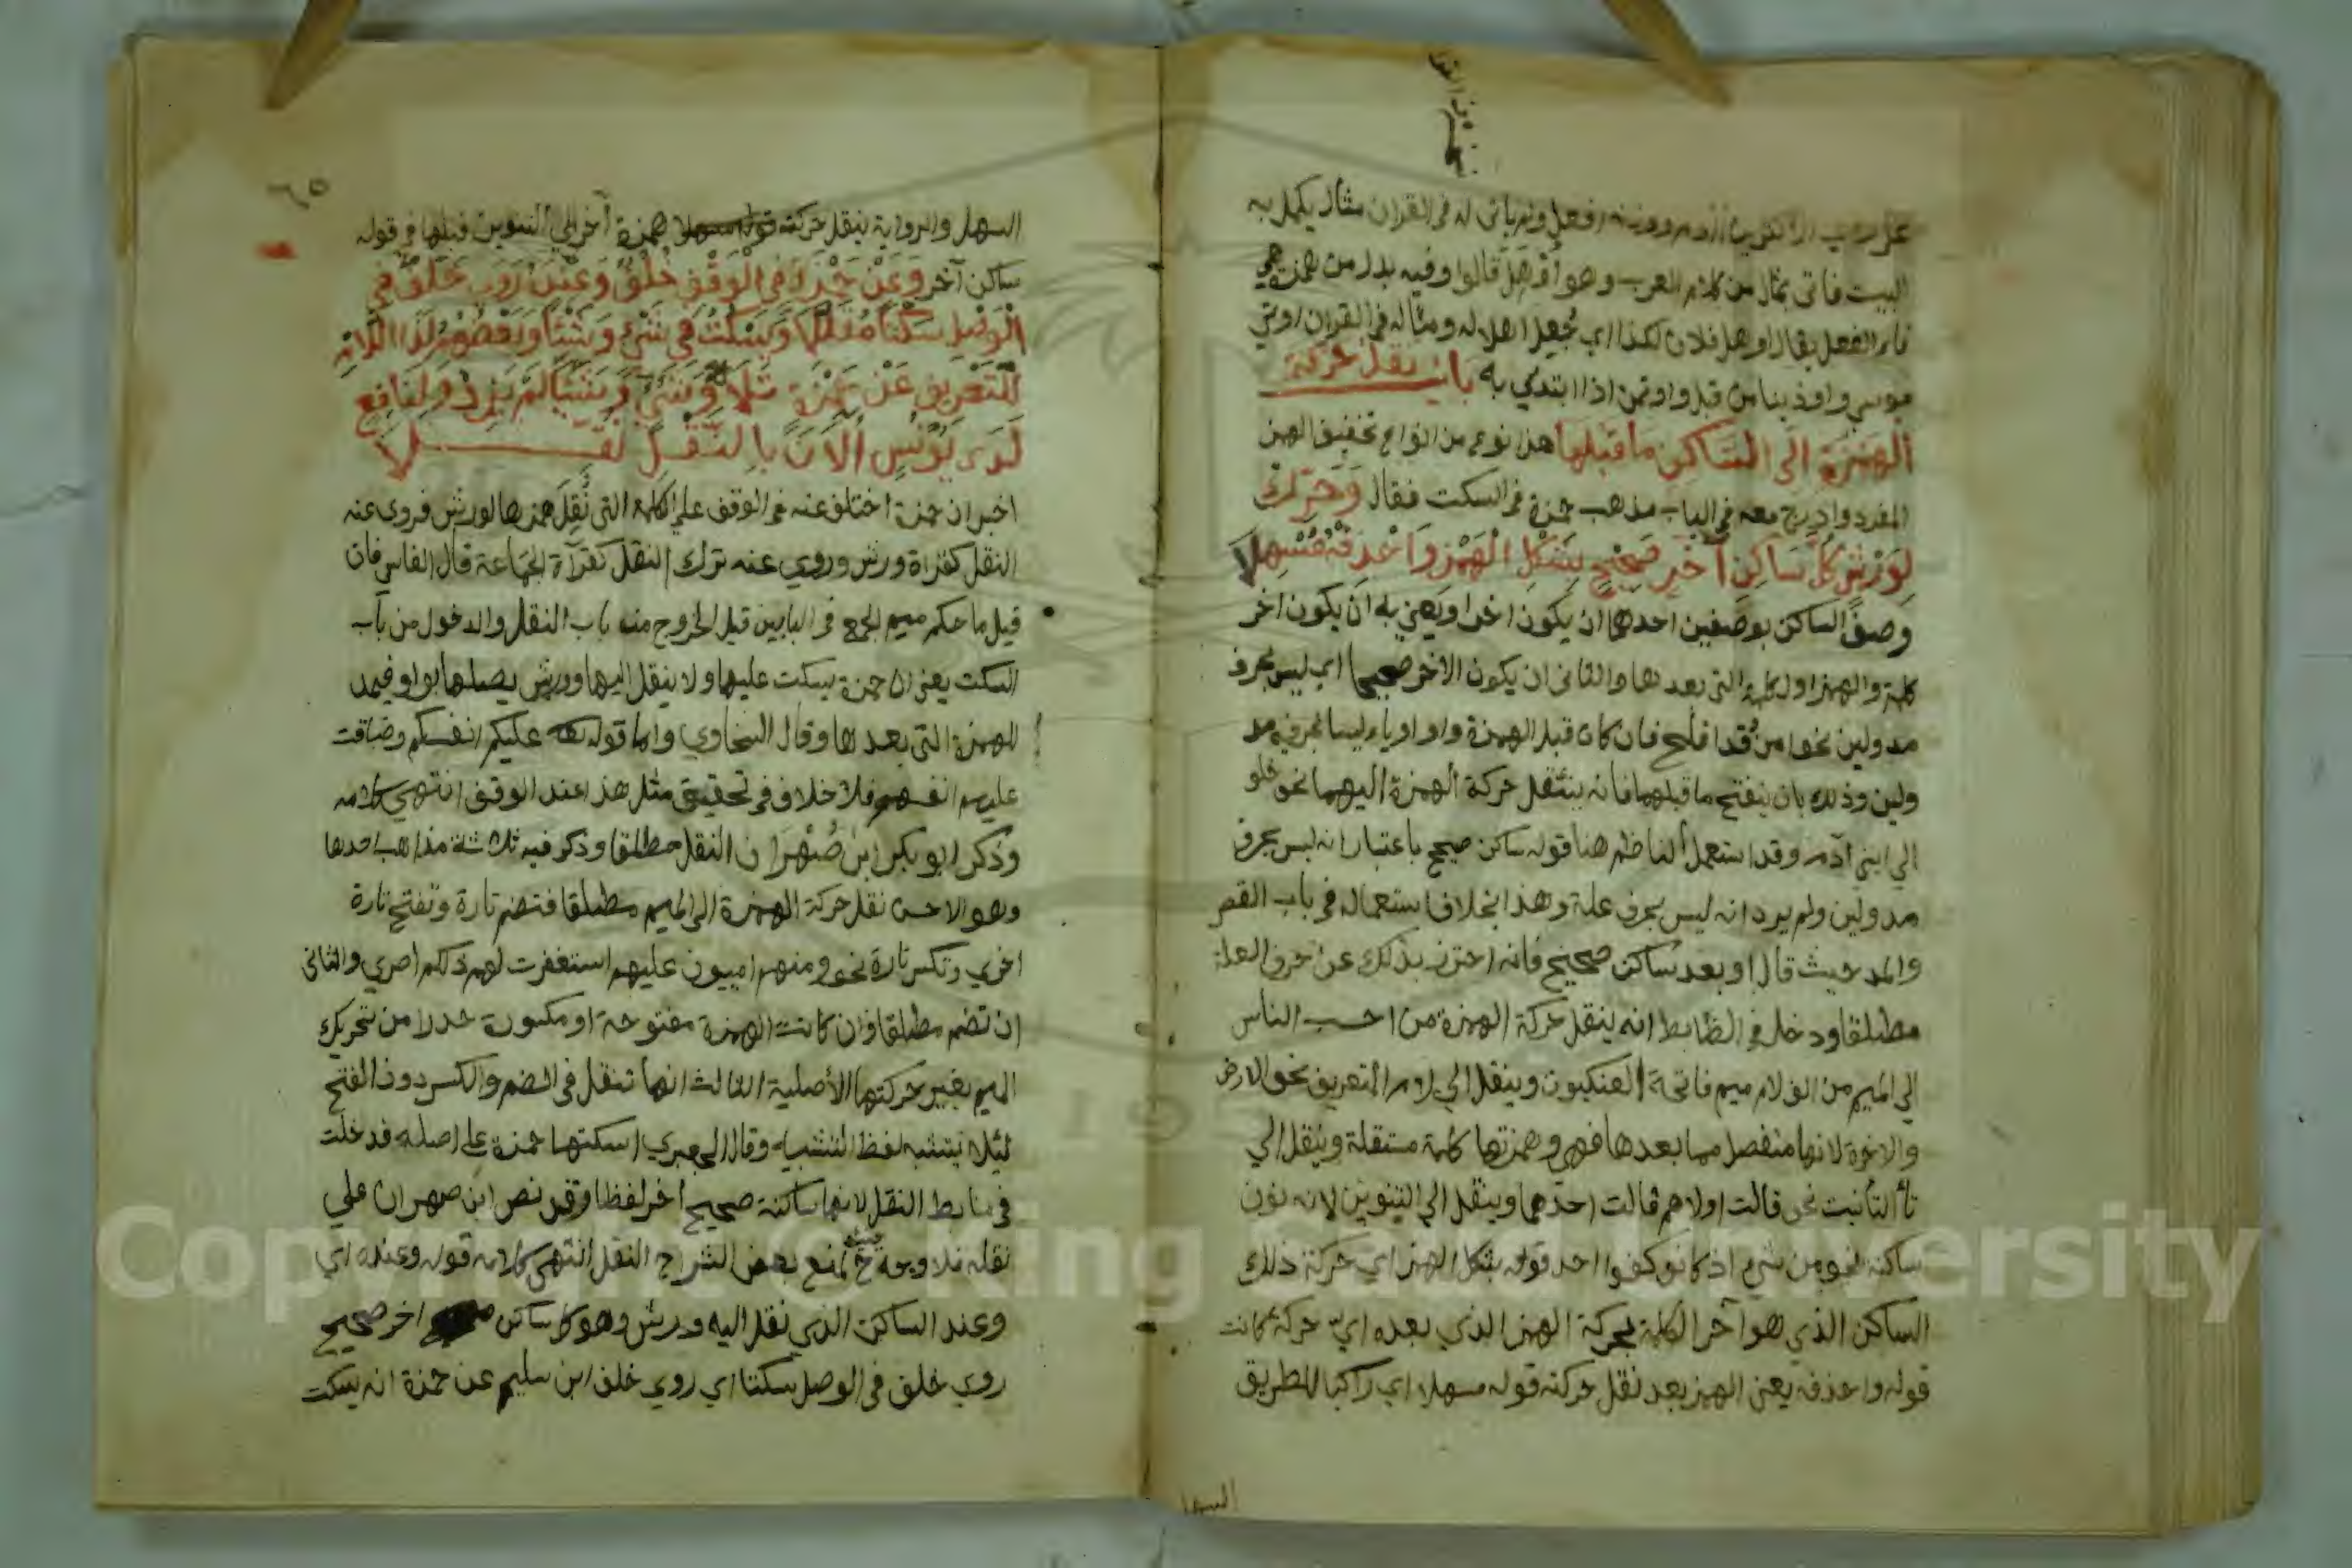 البيت فاتى بمثال من كلام العرب وهو أوهل قالوا وفيه بدل من همزة هي
فاء الفعل يقال اوهل فلان لكذا اي جُعل اهلا له ومثاله في القران اوتي
موسى واوذينا من قبل واوتمن اذا ابتدي به باب نقل حركة
الهمزة الى الساكن ما قبلها هذا نوع من انواع تخفيف الهمز
المفرد وادرج معه في الباب مذهب حمزة في السكت فقال وَحَرِّك
لِوَرْشٍ كُلَّ سَاكِنِ آخِرٍ صَحِيحٍ بِشَكْلِ الْهَمْزِ وَاحْذِفْهُ مُسْهِلَا
وصف الساكن بوصفين احدهما ان يكون اخرا ويعني به ان يكون اخر
كلمة والهمز اول كلمة التي بعدها والثاني ان يكون الاخر صحيحا اي ليس بحرف
مد ولين نحو من قد افلح فان كان قبل الهمزة واو او ياء ليسا بحرفي مد
ولين وذلك بان ينفتح ما قبلهما فانه ينتقل حركة الهمزة اليهما نحو خلو
الى ابني آدم وقد استعمل الناظم هنا قوله ساكن صحيح باعتبار انه ليس بحرف
مد ولين ولم يرد انه ليس بحرف علة وهذا بخلاف استعماله في باب القصر
والمد حيث قال او بعد ساكن صحيح فانه احترز بذلك عن حرف العلة
مطلقا ودخل في الظابط انه ينقل حركة الهمزة من احسب الناس
الى الميم من الف لام ميم فاتحة العنكبوت وينقل الى لام التعريف نحو الارض
والاخرة لانها منفصل مما بعدها فهي وهمزتها كلمة مستقلة وينقل الي
تأ التأنيث نحو قالت اولاهم قالت احدهما وينقل الي التنوين لانه نون
ساكنة نحو من شيء اذ كانوا كفوا احد قوله بشكل الهمز اي حركة ذلك
الساكن الذي هو آخر الكلمة بحركة الهمز الذي بعده ايّ حركة كانت
قوله واحذفه يعني الهمز بعد نقل حركته قوله مسهلا اي راكبا للطريق
السهل
٦٥
السهل والرواية بنقل حركة همزة آخر الي التنوين قبلها في قوله
ساكن آخر وَعَنْ حَمْزَةَ فِي الْوَقْفِ خُلْفٌ وَعِنْدَهُ رَوَى خَلَفٌ فِي
الْوَصْلِ سَكْتًا مُقَلَّلَا وَيَسْكُتُ فِي شَيْءٍ وَشَيْئًا وَبَعْضُهُمْ لَدَى اللَّامِ
لِلتَّعْرِيفِ عَنْ حَمْزَةٍ تَلَا وَشَيْءٍ وَشَيْئًا لَمْ يَزِدْ وَلِنَافِعٍ
لَدَى يُونُسٍ الْآنَ بِالنَّقْلِ نُقِّلَا
اخبر ان حمزة اختلف عنه في الوقف على الكلمة التي نُقِلَ همزها لورش فروي عنه
النقل كقراة ورش وروي عنه ترك النقل كقرآة الجماعة قال الفاسي فان
قيل ما حكم ميم الجمع في البابين قيل الخروج منه باب النقل والدخول من باب
السكت يعني ان حمزة يسكت عليها ولا ينقل اليها وورش يصلها بواو فيمد
للهمزة التي بعدها وقال السخاوي واما قوله عليكم انفسكم وضاقت
عليهم انفسهم فلا خلاف في تحقيق مثل هذا عند الوقف انتهي كلامه
وذكر ابو بكر ابن مهران النقل مطلقا وذكر فيه ثلاثة مذاهب احدها
وهو الاحسن نقل حركة الهمزة الى الميم مطلقا فتضم تارة وتفتح تارة
اخري وتكسر تارة نحو ومنهم اميون عليهم استغفرت لهم ذلكم اصري والثاني
ان تضم مطلقا وان كانت الهمزة مفتوحة او مكسورة حذرا من تحريك
الميم بغير حركتها الأصلية الثالث انها تنقل في الضم والكسر دون الفتح
ليلا يشبه لفظ التثنية وقال الجعبري اسكتها حمزة على اصله فدخلت
في ضابط النقل لانها ساكنة صحيح آخر لفظا وقد نص ابن مهران علي
نقله فلا وجه لمنع بعض الشراح النقل انتهى كلامه قوله وعنده اي
وعند الساكن الذي نقل اليه ورش وهو كل ساكن اخر صحيح
روي خلف في الوصل سكتا اي روي خلف ابن سليم عن حمزة انه يسكت
Copyright © King Saud University